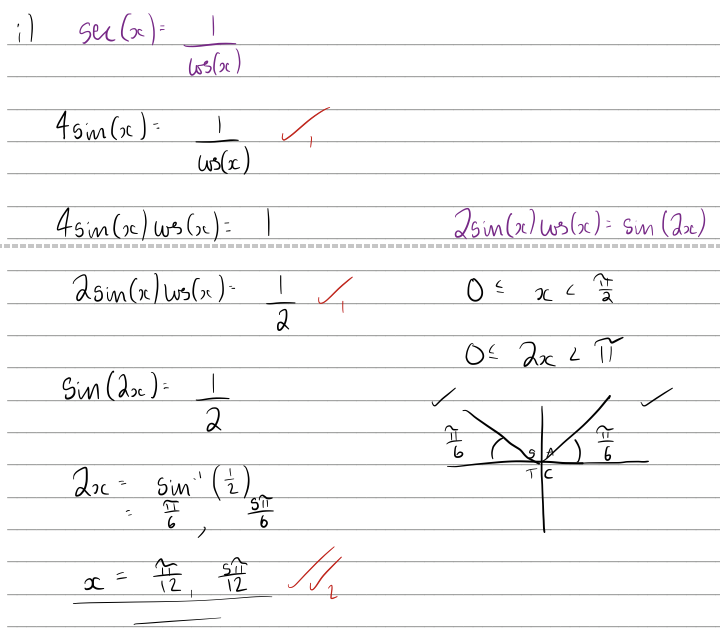 i) sec(x) = 1/cos(x)
4sin(x) = 1/cos(x) ✓1
4sin(x)cos(x) = 1
2sin(x)cos(x) = sin(2x)
2sin(x)cos(x) = 1/2 ✓1
0 ≤ x < π/2
0 ≤ 2x < π
sin(2x) = 1/2
✓ ✓
π/6 π/6
S A
T C
2x = sin⁻¹(1/2)
= π/6, 5π/6
x = π/12, 5π/12 ✓✓2